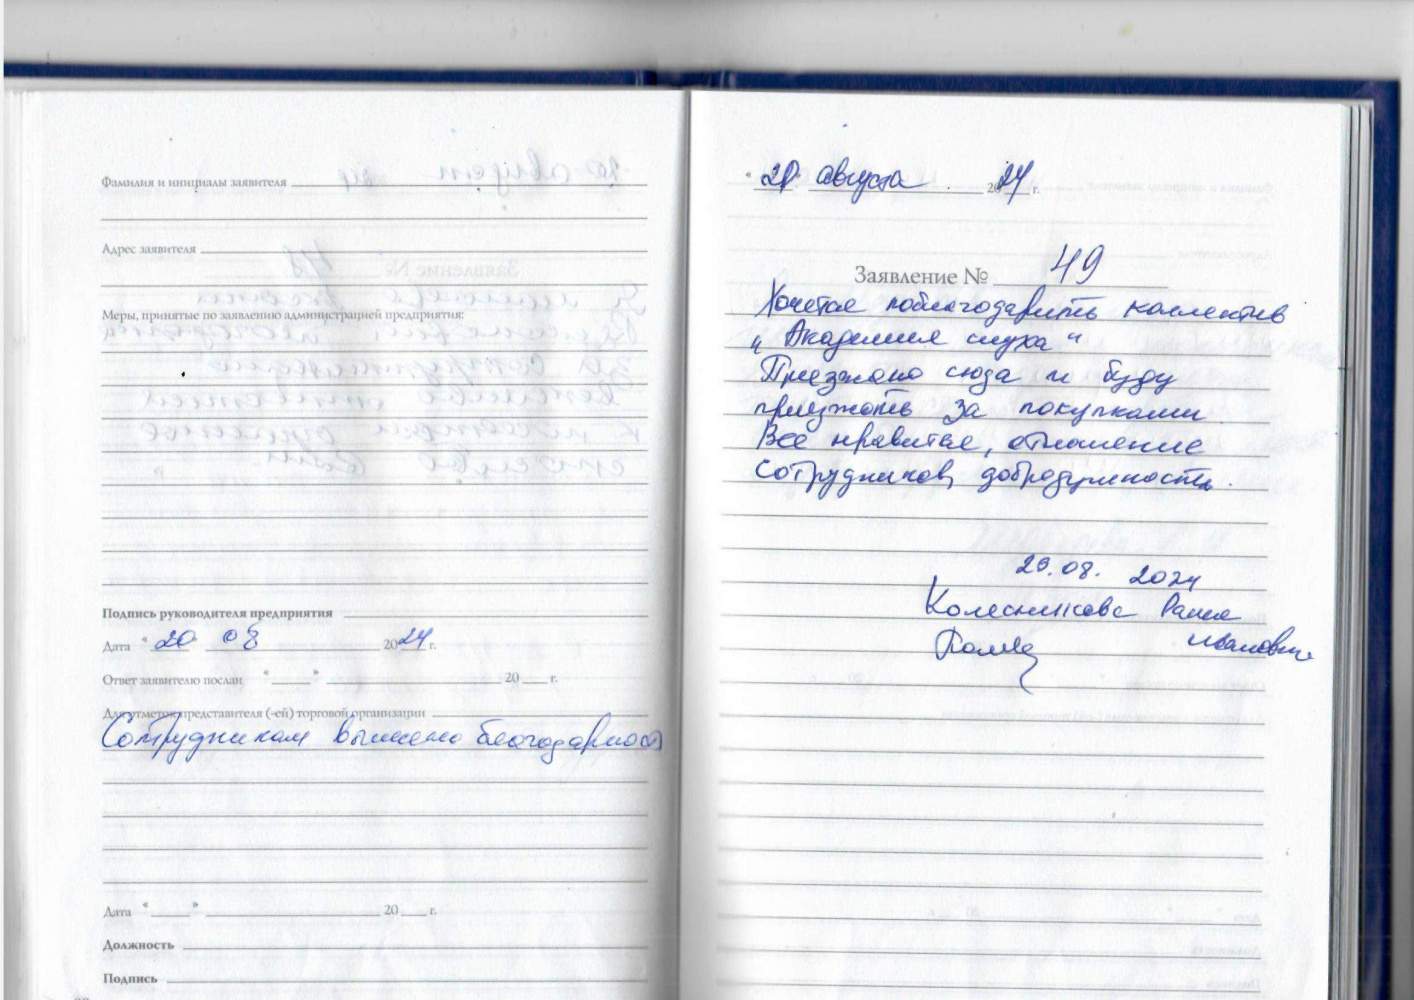 Фамилия и инициалы заявителя
Адрес заявителя
Меры, принятые по заявлению администрацией предприятия:
Подпись руководителя предприятия
Дата "20 08 2024 г.
Ответ заявителю послан " " 20 г.
Для отметок представителя (-ей) торговой организации
Сотрудникам благодарность
Дата " " 20 г.
Должность
Подпись
" августа 2024 г.
Заявление № 49
Хочется поблагодарить коллектив
„Академия слуха"
Приезжаю сюда и буду
приезжать за покупками
Все нравится, отношение
сотрудников, добродушность.
08. 2024
Колесникова Раиса
Ивановна